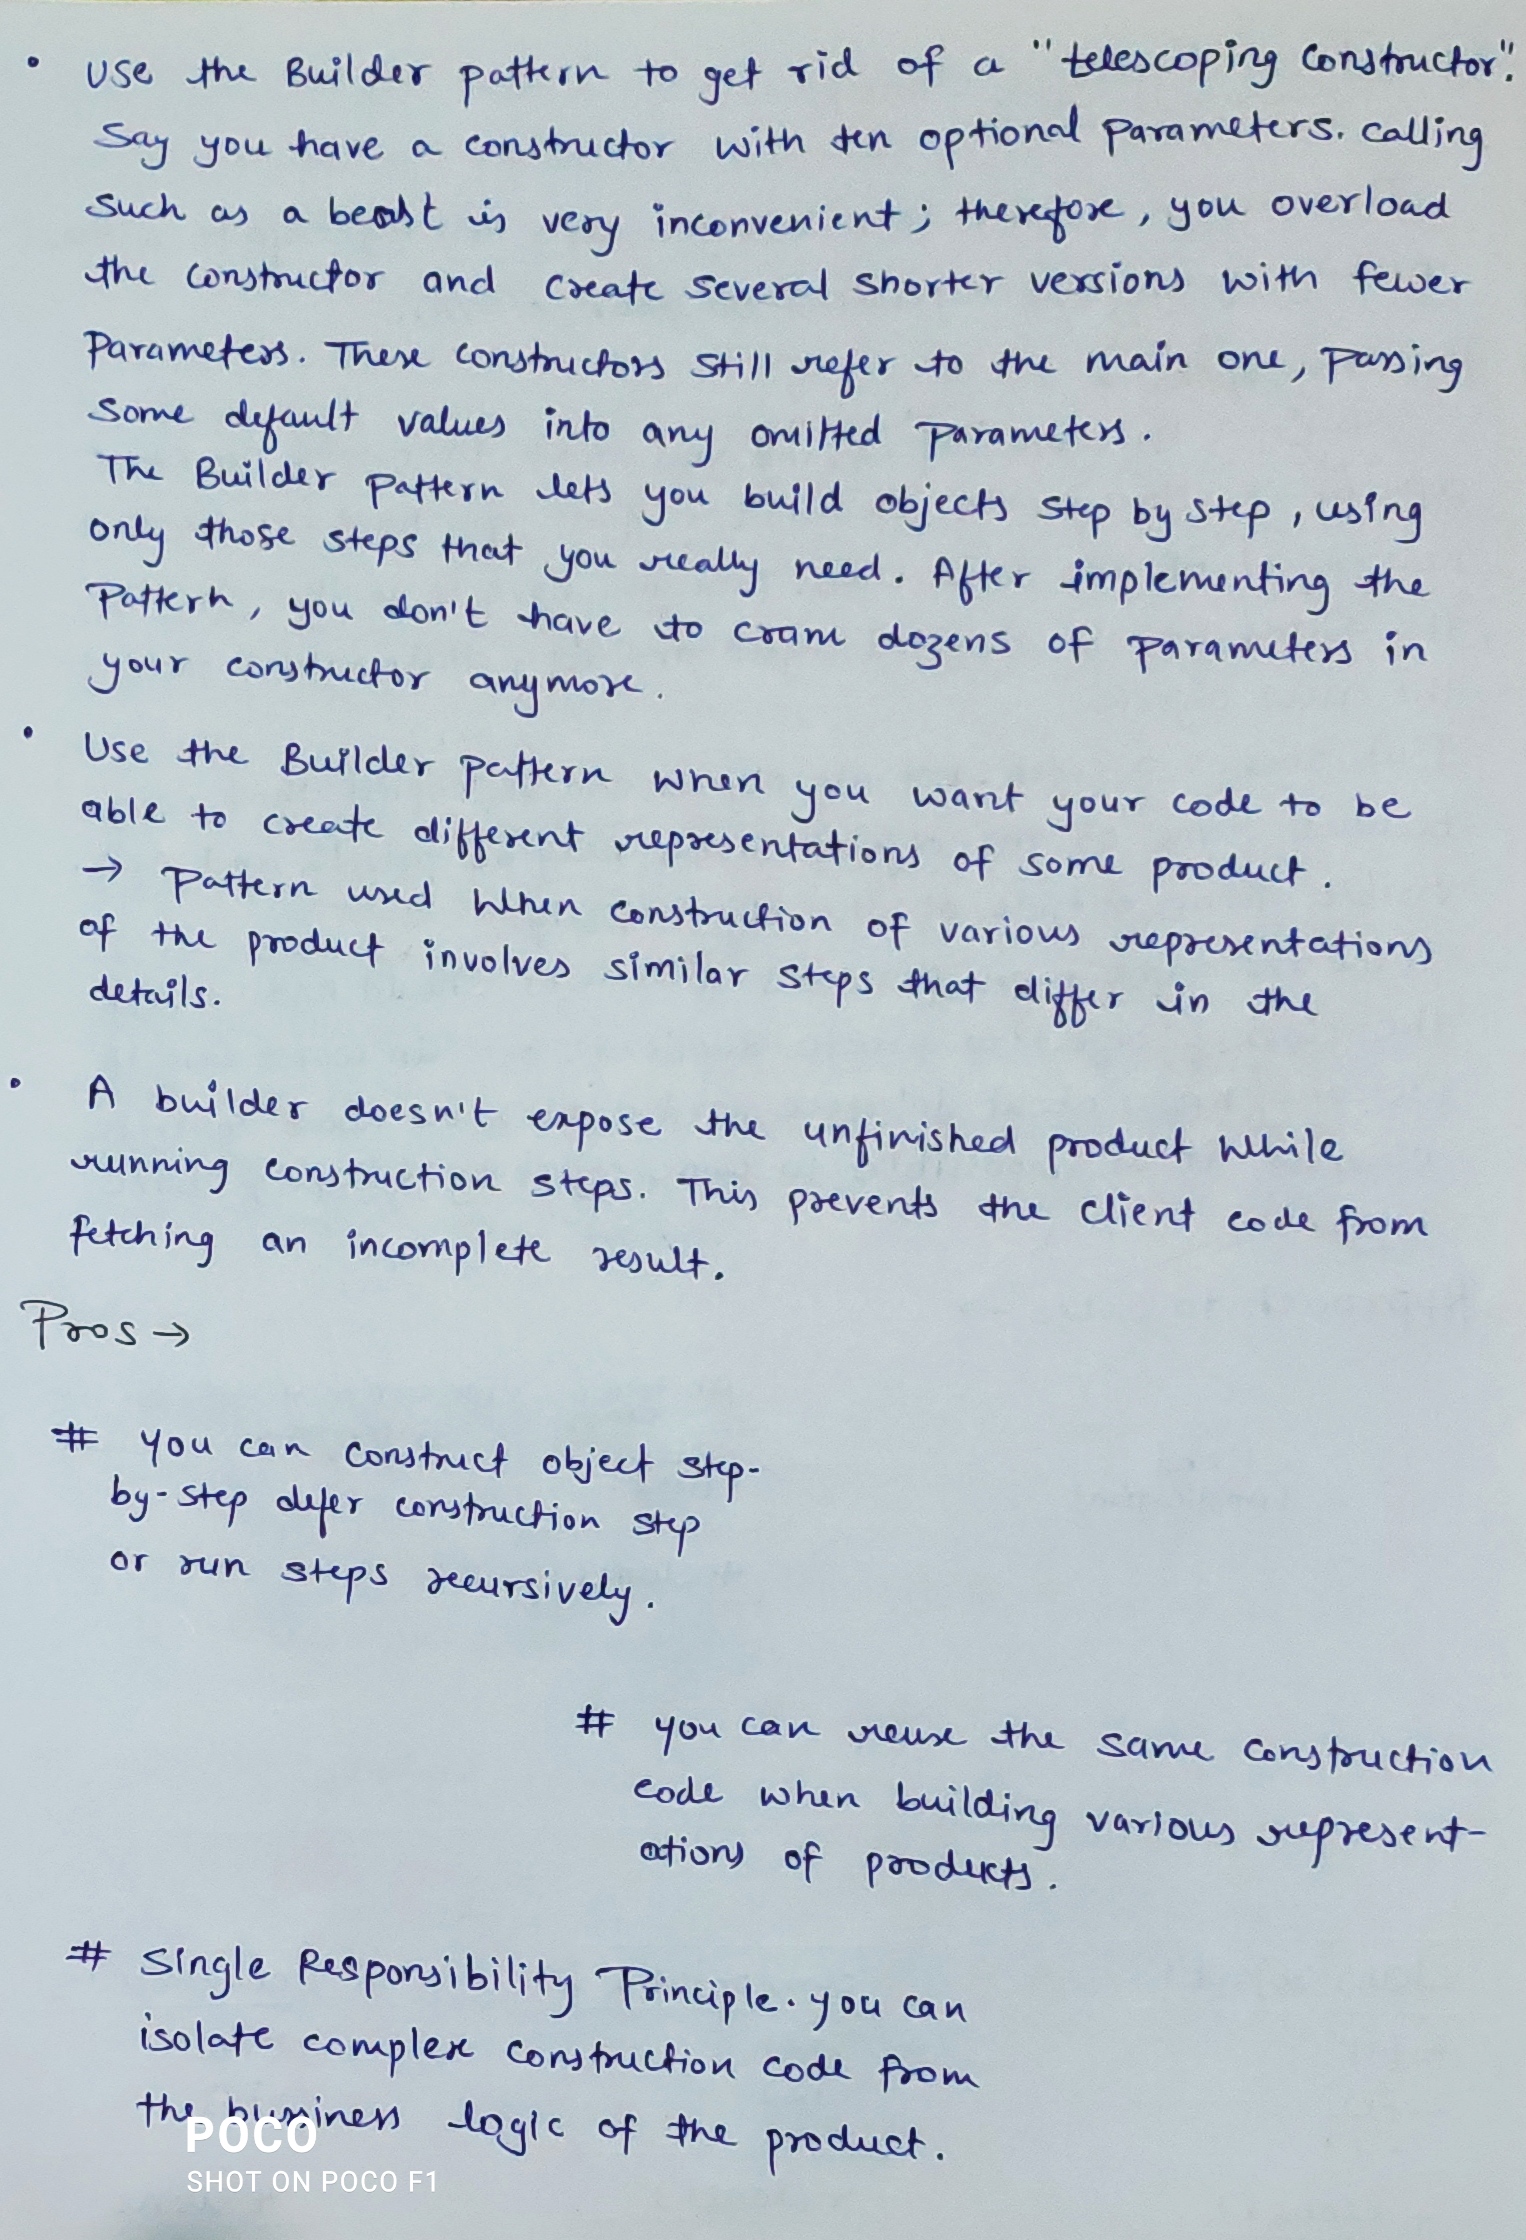 • Use the Builder pattern to get rid of a "telescoping constructor".
Say you have a constructor with ten optional parameters. calling
such as a beast is very inconvenient; therefore, you overload
the constructor and create several shorter versions with fewer
Parameters. These constructors still refer to the main one, passing
some default values into any omitted parameters.
The Builder pattern lets you build objects step by step, using
only those steps that you really need. After implementing the
Pattern, you don't have to cram dozens of parameters in
your constructor anymore.
• Use the Builder pattern when you want your code to be
able to create different representations of some product.
→ Pattern used when construction of various representations
of the product involves similar steps that differ in the
details.
• A builder doesn't expose the unfinished product while
running construction steps. This prevents the client code from
fetching an incomplete result.
Pros →
# you can construct object step-
by-step defer construction step
or run steps recursively.
# you can reuse the same construction
code when building various represent-
ations of products.
# Single Responsibility Principle. you can
isolate complex construction code from
the bussiness logic of the product.
POCO
SHOT ON POCO F1